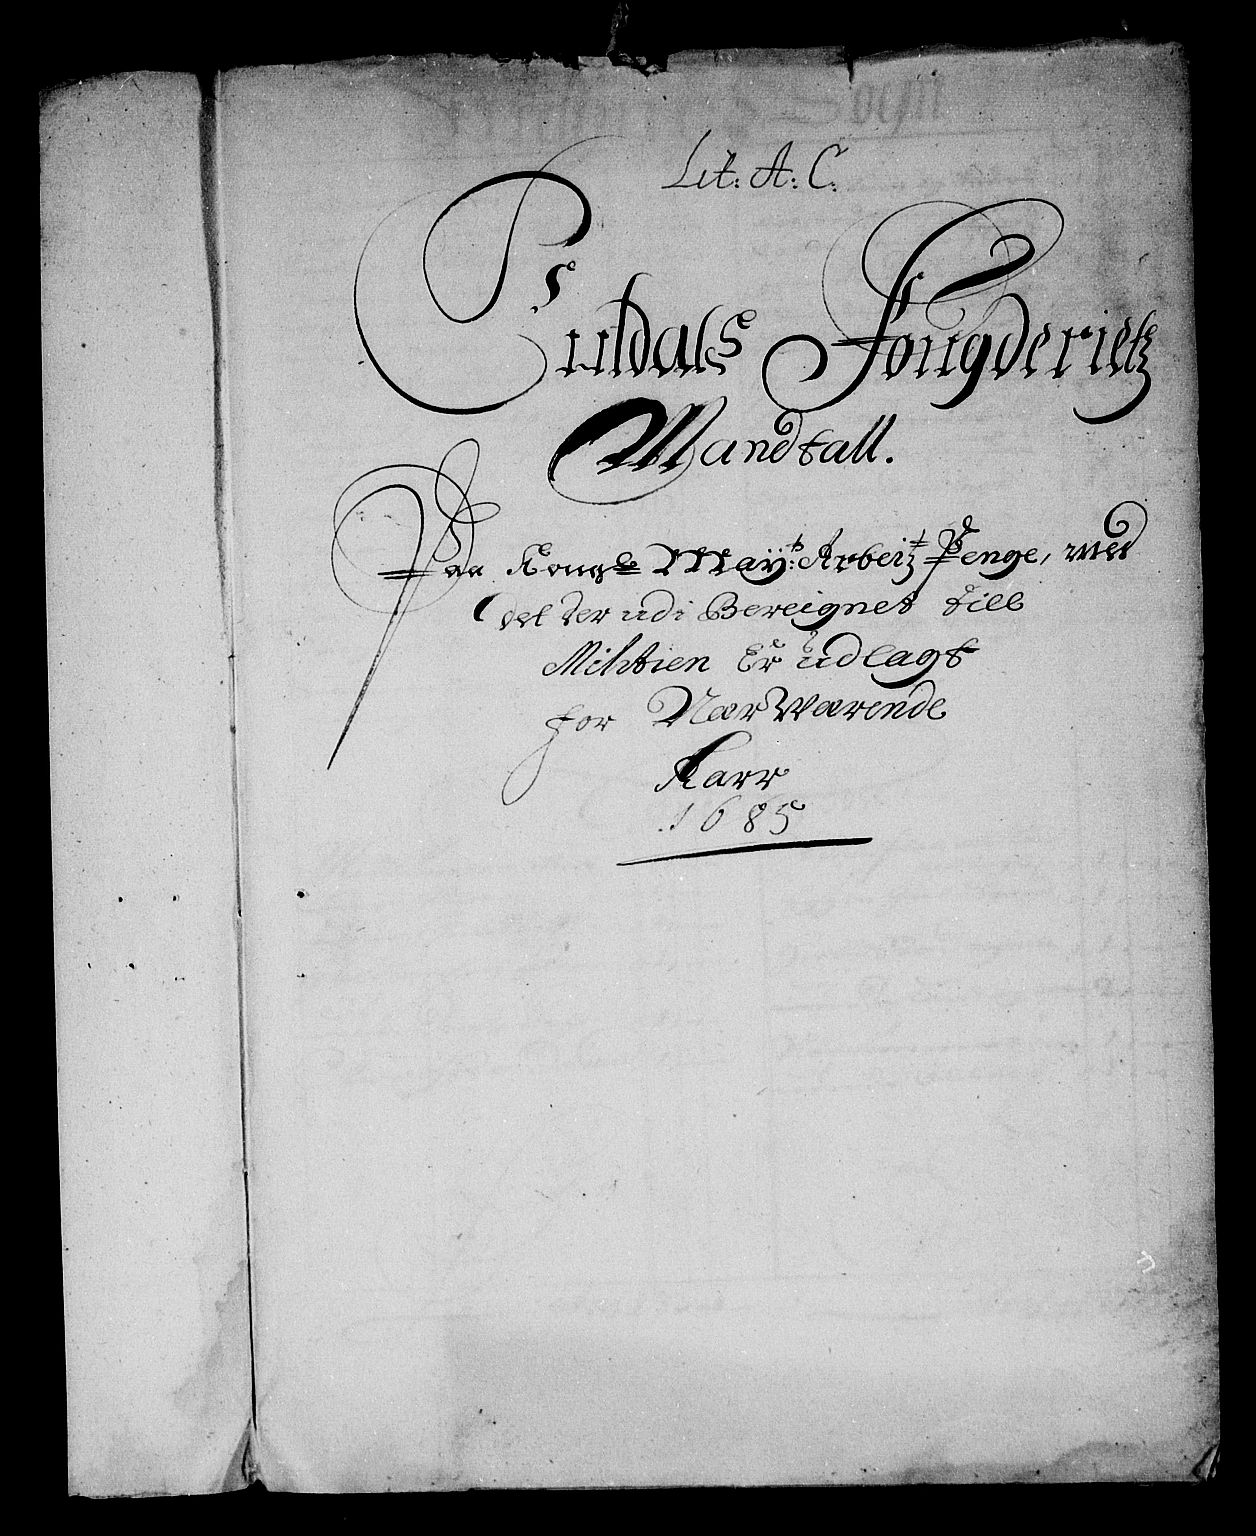 Lit: A: C:
Guldals Fougderietz
Mandtall.
Paa Kongl May:ts Arbeitz Penge, med
det der udi Bereignet till
Militien Er udlagt
for Nær Værende
Aarr
.1685